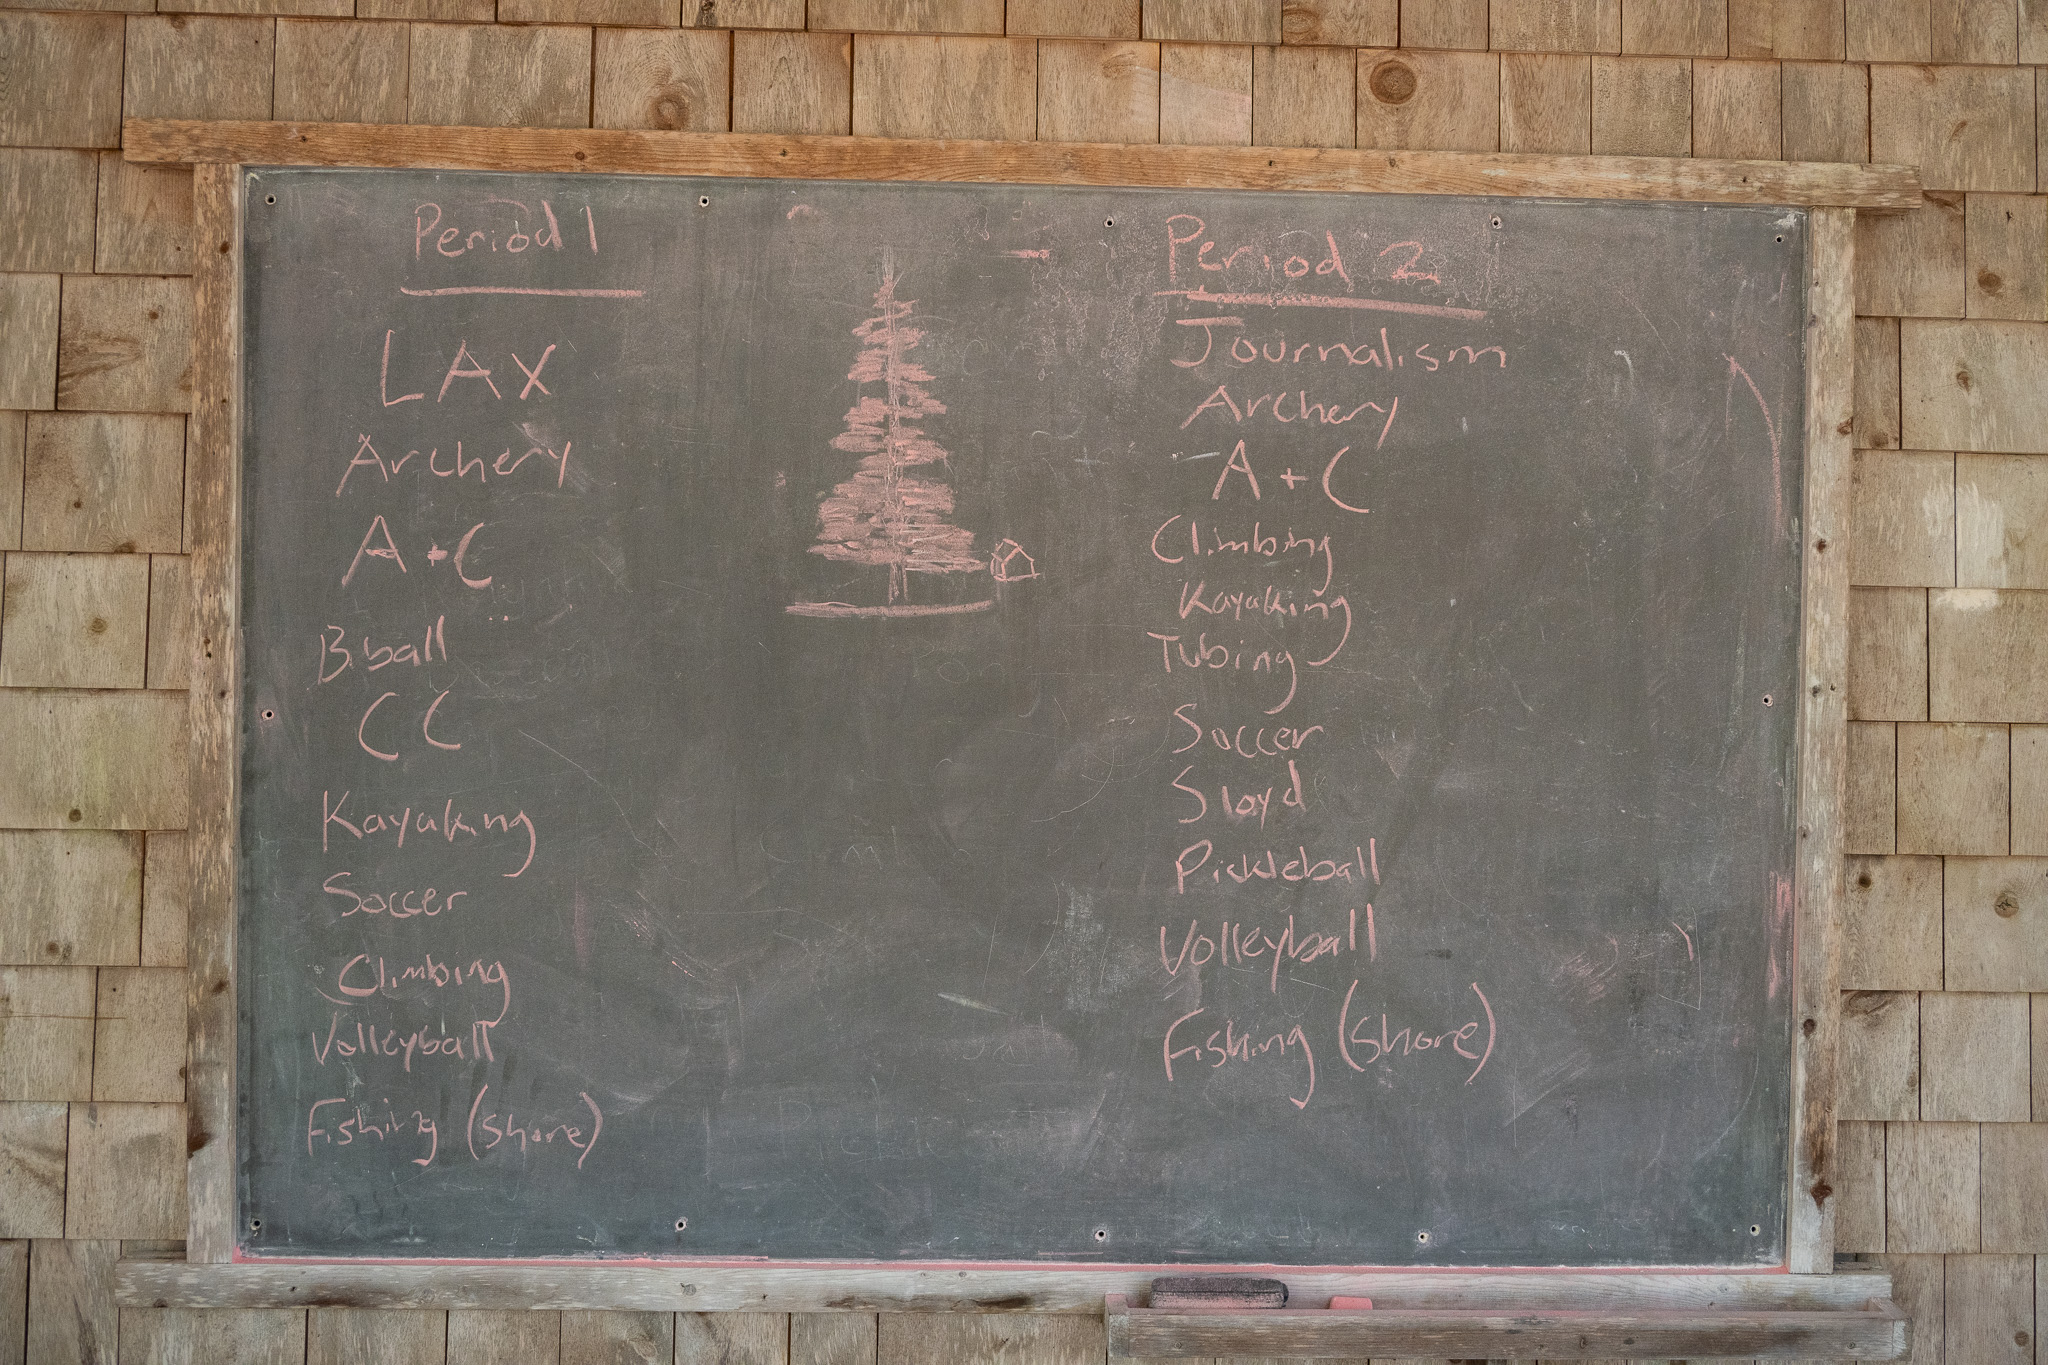 Period 1
LAX
Archery
A+C
B.ball
CC
Kayaking
Soccer
Climbing
Volleyball
Fishing (shore)
Period 2
Journalism
Archery
A+C
Climbing
Kayaking
Tubing
Soccer
Sloyd
Pickleball
Volleyball
Fishing (shore)